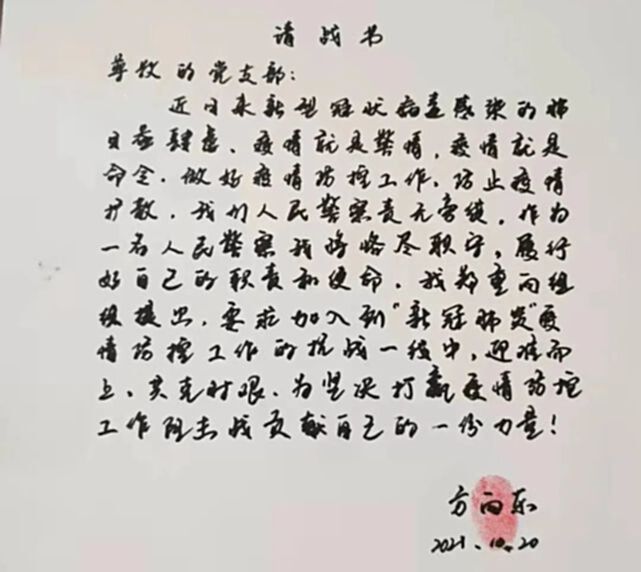 请战书
尊敬的党支部：
近日来新型冠状病毒感染的肺
日益肆虐、疫情就是警情，疫情就是
命令．做好疫情防控工作．防止疫情
扩散．我们人民警察责无旁贷．作为
一名人民警察我将恪尽职守，履行
好自己的职责和使命．我郑重向组
组提出．要求加入到“新冠肺炎”疫
情防控工作的抗战一线中，迎难而
上、共克时艰．为坚决打赢疫情防控
工作阻击战贡献自己的一份力量！
方向东
2021.10.20